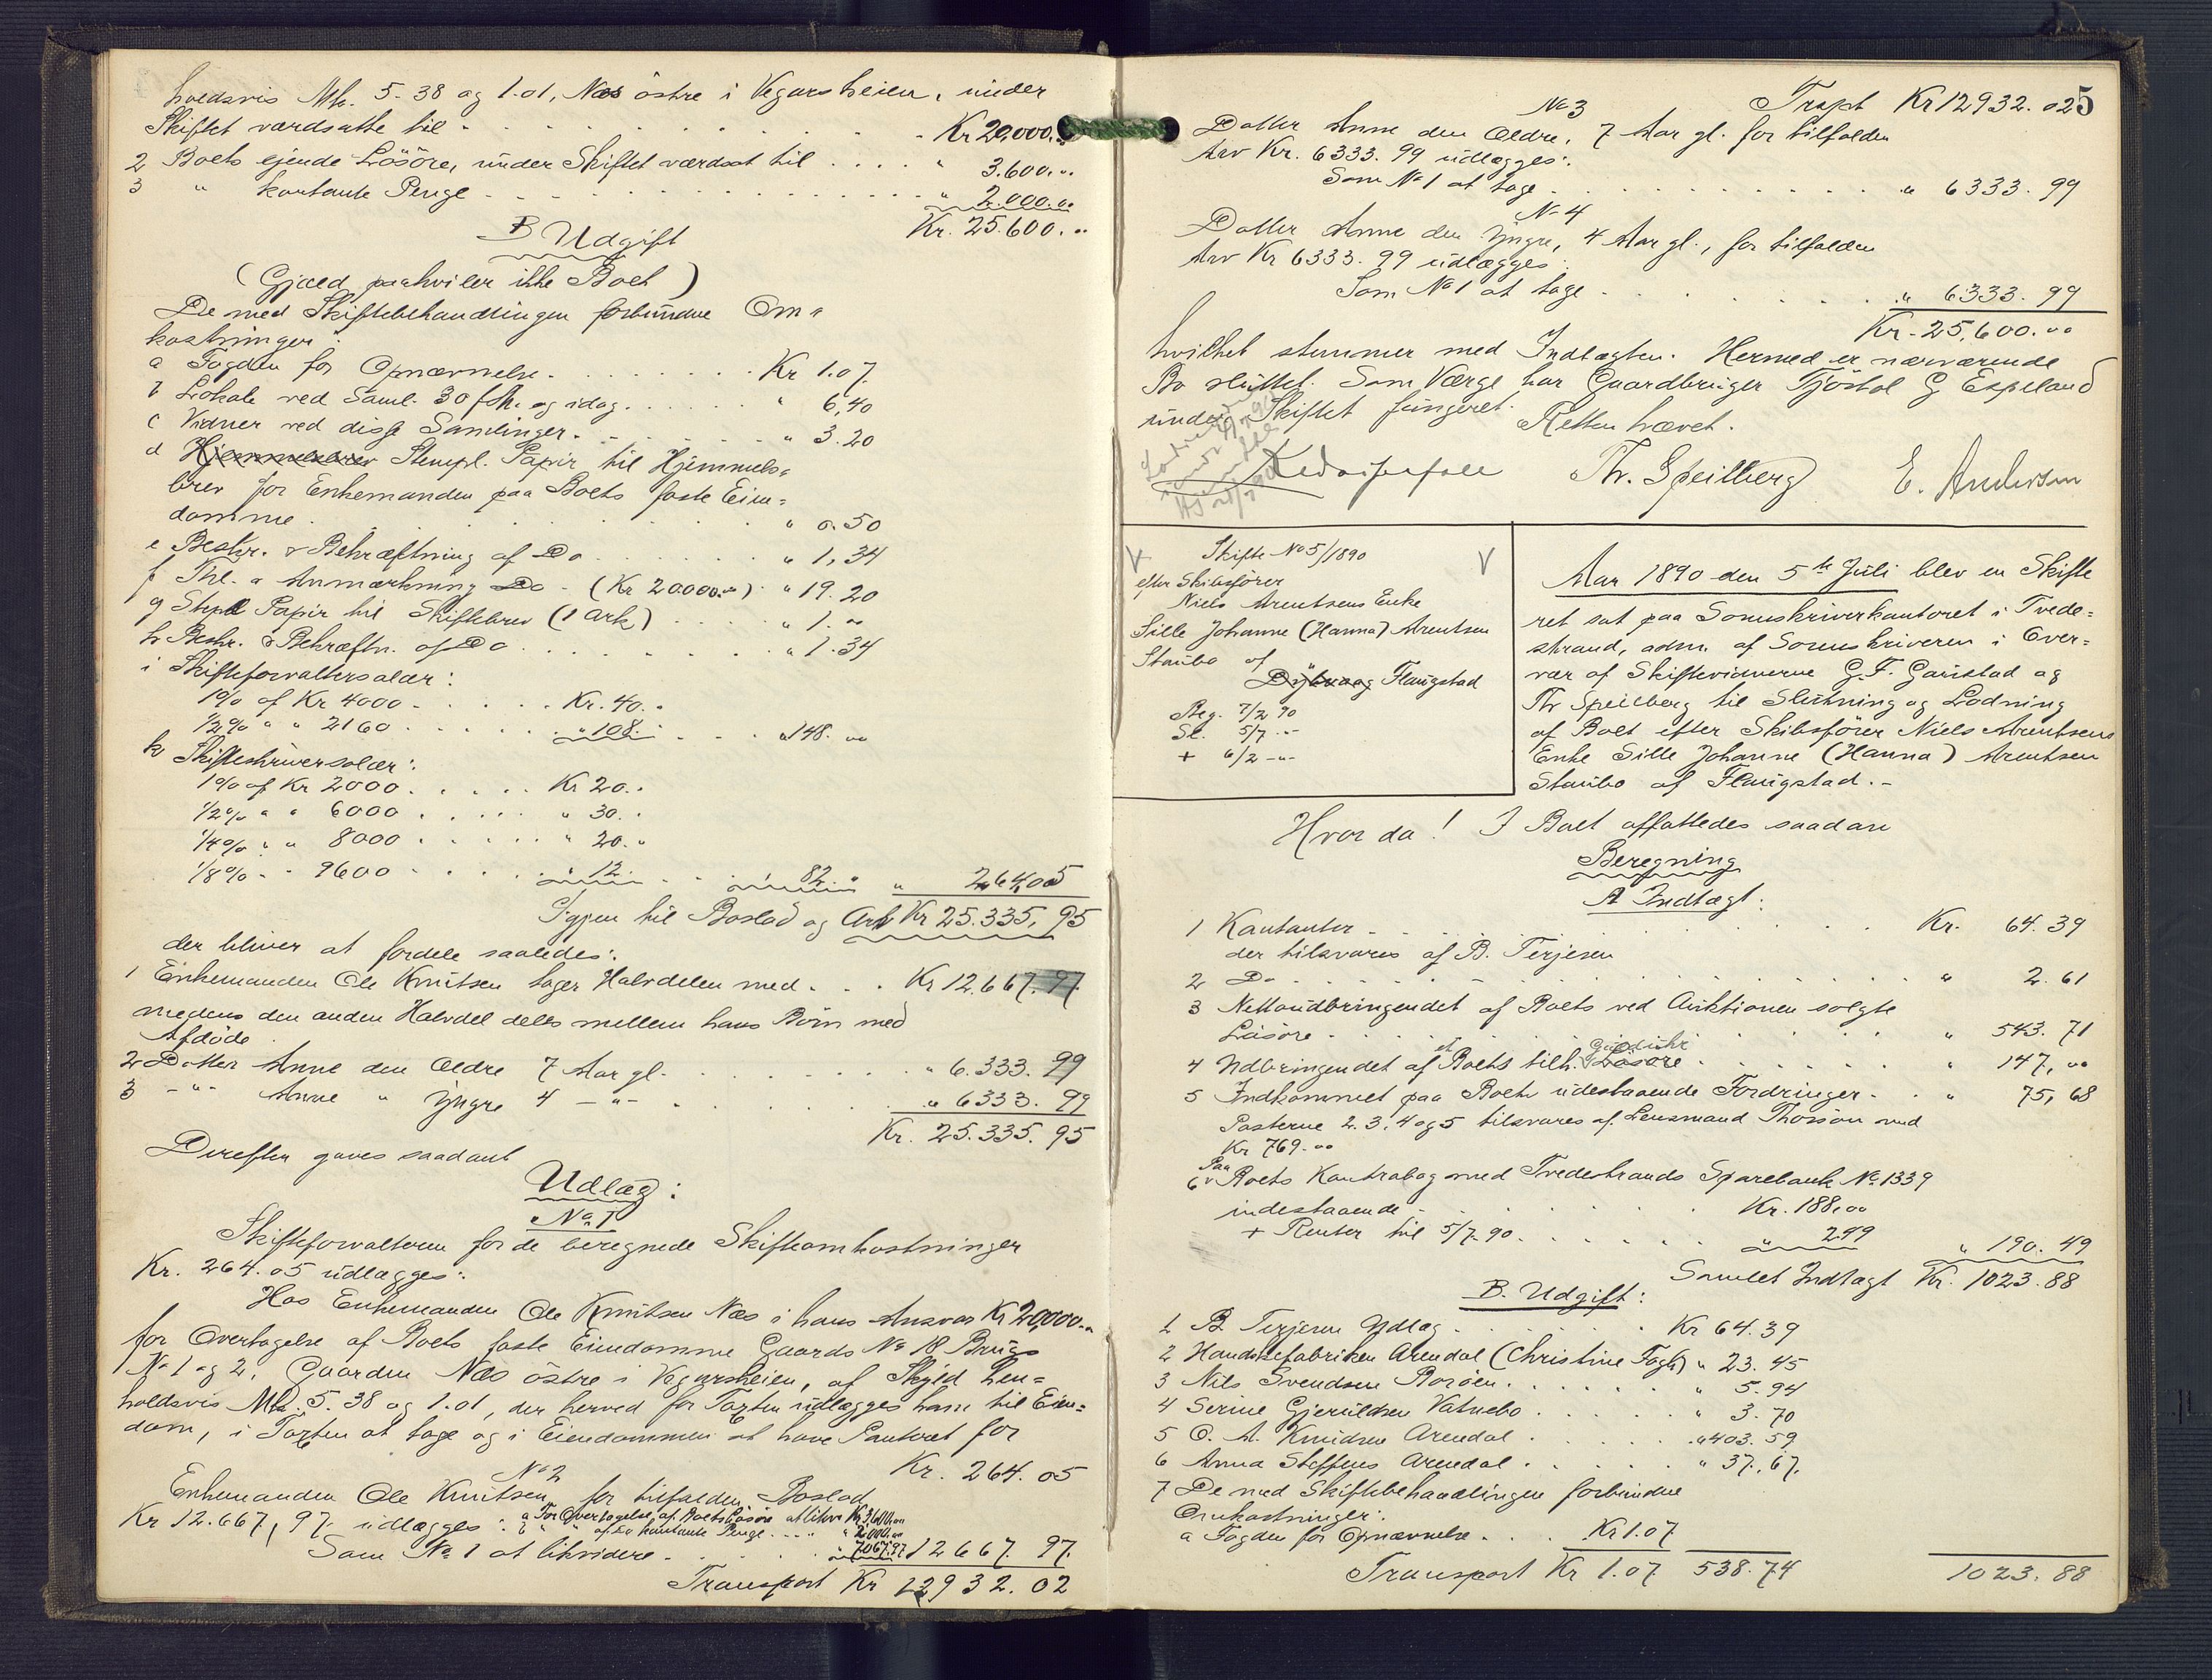 holdsvis Mk. 5.38 og 1.01, Næs östre i Vegarsheien, under
Skiftet værdsatte til . . . Kr 20,000.„
2 Boets ejende Lösöre, under Skiftet værdsat til . . . . „ 3.600.„
3 „ kontante Penge . . . „ 2.000.„
Kr. 25.600.„
B Udgift
(Gjæld paahviler ikke Boet)
De med Skiftebehandlingen forbundne Om=
kostninger:
a Fogden for Opnævnelse . . . Kr 1.07.
b Lokale ved Saml. 30 f.M. og idag . . . „ 6,40
c Vidner ved disse Samlinger . . . „ 3.20
d Hjemmelsbrev Stempl. Papir til Hjemmels=
brev for Enkemanden paa Boets faste Eien=
domme . . . „ 0.50
e Beskr. & Bekræftning af Do . . . „ 1,34
f Thl. & Anmærkning Do - (Kr 20.000.„) . „ 19.20
g Stpl Papir til Skiftebrev (1 Ark) . . . „ 1.„
h Beskr. & Bekræftn. af Do . . . „ 1.34
i Skifteforvaltersalær:
1% af Kr 4000 . . . Kr. 40.„
1/2% „ „ 2160 . . . „ 108.„ . . . „ 148.„
k Skifteskriversalær:
1% af Kr 2000 . . . Kr 20.„
1/2% „ „ 6000 . . . „ 30.„
1/4% „ „ 8000 . . . „ 20.„
1/8% „ „ 9600 . . . „ 12.„ . . . 82.„ „ 264.05
Igjen til Boslod og Arv Kr 25.335,95
der bliver at fordele saaledes:
1 Enkemanden Ole Knutsen tager Halvdelen med . . . Kr 12.667.97.
medens den anden Halvdel deles mellem hans Börn med
Afdöde
2 Datter Anne den Ældre 7 Aar gl. . . . „ 6.333.99
3 -„- Anne „ Yngre 4 -„- . . . „ 6333.99
Kr. 25.335.95
Derefter gaves saadant
Udlæg:
No 1
Skifteforvalteren for de beregnede Skifteomkostninger
Kr. 264.05 udlægges:
Hos Enkemanden Ole Knutsen Næs i hans Ansvar Kr 20,000.„
for Overtagelse af Boets faste Eiendomme Gaards No 18 Brugs
No 1 og 2, Gaarden Næs östre i Vegarsheien, af Skyld hen=
holdsvis Mk. 5.38 og 1.01, der herved for Taxten udlægges ham til Eien=
dom, i Taxten at tage og i Eiendommen at have Panteret for
Kr. 264.05
No 2
Enkemanden Ole Knutsen for tilfalden Boslod
Kr 12.667,97 udlægges: a For Overtagelse af Boets Lösöre at likvi Kr 3,600.„
b „ „ af Do kontante Penge . . . „ 2000.„
Som No 1 at likvidere . . . „ 7067.97 12667.97.
Transport Kr 12932.02
Trspt Kr 12932.02 5
No 3
Datter Anne den Ældre, 7 Aar gl. for tilfalden
Arv Kr. 6333.99 udlægges:
Som No 1 at tage . . . „ 6333.99
No 4
Datter Anne den Yngre, 4 Aar gl., for tilfalden
Arv Kr 6333.99 udlægges:
Som No 1 at tage . . . „ 6333.99
Kr. 25,600.„
hvilket stemmer med Indtægten. Hermed er nærværende
Bo sluttet. Som Værge har Gaardbruger Tjöstol G Espeland
under Skiftet fungeret. Retten hævet.
Th. Speilberg E. Andersen
Skifte No 5/1890
efter Skibsförer
Niels Arentsens Enke
Sille Johanne (Hanna) Arentsen
Staubo af
Dybvaag Flaugstad
Reg. 7/2 90
Sl. 5/7 -„-
+ 6/2 -„-
Aar 1890 den 5te Juli blev en Skifte
ret sat paa Sorenskriverkontoret i Tvede=
strand, adm. af Sorenskriveren i Over=
vær af Skiftevidnerne G.F. Garstad og
Th Speilberg til Slutning og Lodning
af Boet efter Skibsförer Niels Arentsens
Enke Sille Johanne (Hanna) Arentsen
Staubo af Flaugstad.-
Hvor da! I Boet affattedes saadan
Beregning
A Indtægt:
1 Kontanter . . . Kr. 64.39
der tilsvares af B. Terjesen
2 Do . . . „ 2.61
3 Nettoudbringendet af Boets ved Auktionen solgte
Lösöre . . . „ 543.71
4 Udbringendet af et Boets tilh. Lösöre . . . „ 147,„
5 Indkommet paa Boets udestaaende Fordringer . . „ 75,68
Posterne 2.3.4 og 5 tilsvares af Lensmand Thorsön med
Kr 769.„
6 Paa Boets Kontrabog med Tvedestrands Sparebank No 1339
indestaaende . . . Kr. 188,„
+ Renter til 5/7.90 . . . „ 2.49 „ 190.49
Samlet Indtægt Kr. 1023.88
B. Udgift:
1 B. Terjesen Udlæg . . . Kr 64.39
2 Handskefabriken Arendal (Christine Fogh) „ 23.45
3 Nils Svendsen Borøen . . . „ 5.94
4 Serine Gjeruldsen Vatnebo . . . „ 3.70
5 O. A. Knudsen Arendal . . . „ 403.59
6 Anna Steffens Arendal . . . „ 37.,67.
7 De med Skiftebehandlingen forbundne
Omkostninger:
a Fogden for Opnævnelse . . . Kr 1.07
Transport Kr 1.07 538.74 1023.88